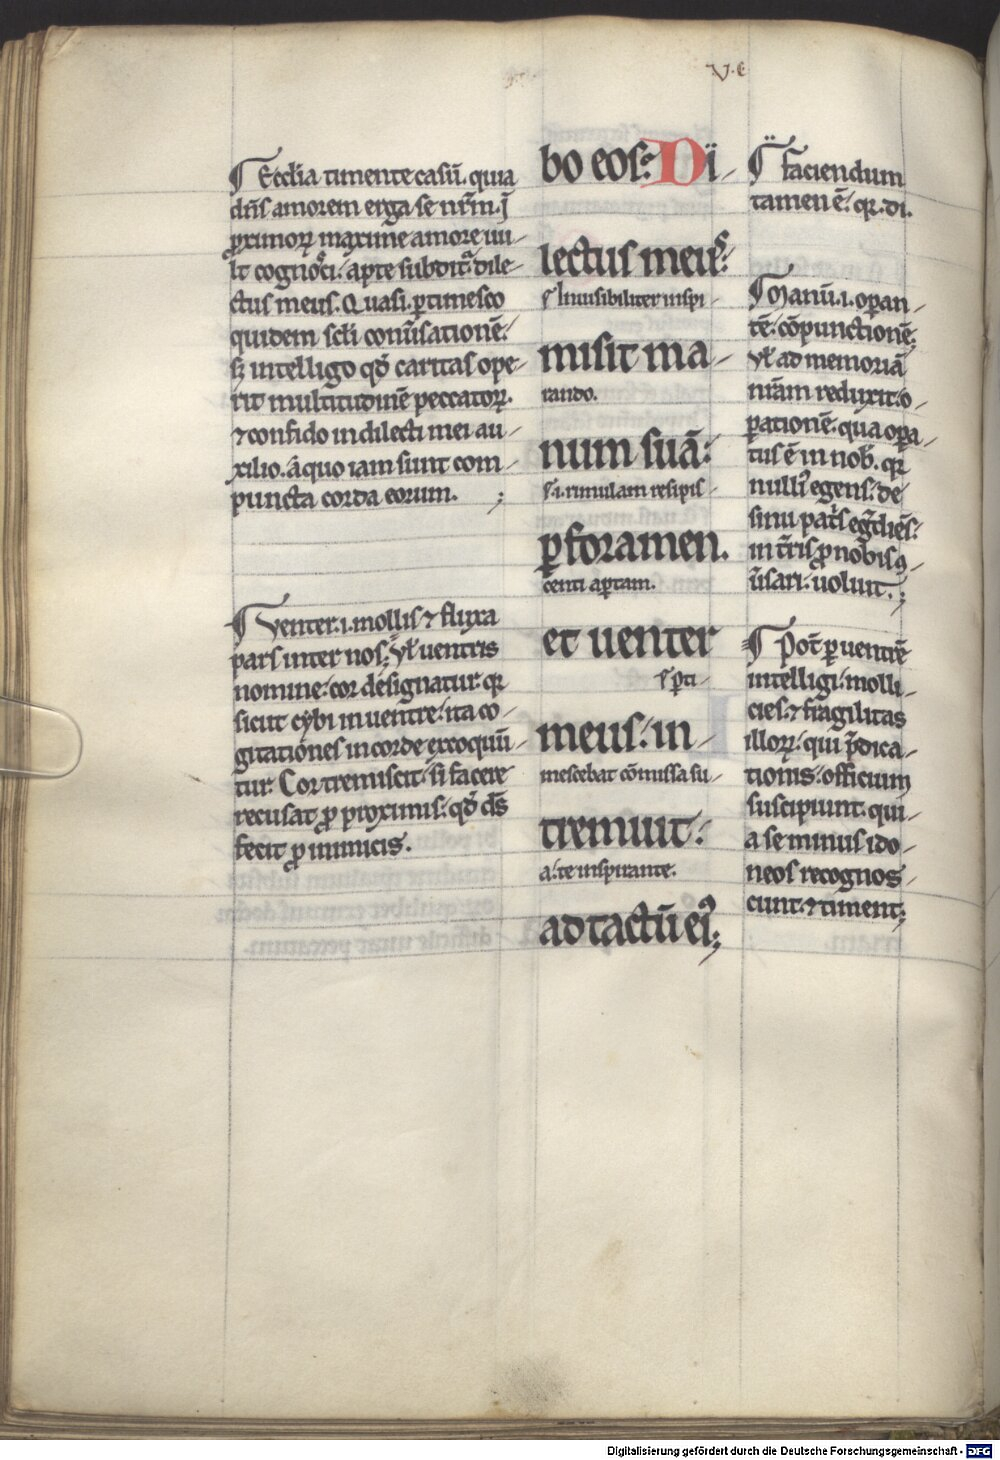 V. C
¶ Ecclīa timente casū. quia
dn̄s amorem erga se nr̄m. ī
proximorꝝ maxime amore uu-
lt cognosci. apte subditur. dile-
ctus meus. Quasi. ꝑtimesco
quidem scl̄i conūsationē:
sꝫ intelligo qd̄ caritas ope-
rit multitudinē peccatoꝝ.
⁊ confido in dilecti mei au-
xilio. a quo iam sunt com-
puncta corda eorum. ;
¶ Venter .i. mollis ⁊ fluxa
pars inter nos; Vl̄ uentris
nomine: cor designatur. qr
sicut cybi in uentre: ita co-
gitationes in corde excoquū-
tur. Cor tremiscit: si facere
recusat ꝓ proximis: qd̄ dn̄s
fecit ꝓ inimicis.
bo eos: Di-
lectus meus:
s. Inuisibiliter inspi-
misit ma-
rando.
num suā:
s. i. rimulam resipis-
ꝑ foramen.
centi aptam.
et uenter
s. ꝑti-
meus: in-
mescebat cōmissa su-
tremuit:
a: te inspirante.
ad tactū eiꝰ;
¶ faciendum
tamen ē: qr. di.
¶ Manū .i. oꝑan-
tē: cōpunctionē;
Vl̄ ad memoriā
nr̄am reduxit: o-
ꝑationē: qua oꝑa-
tus ē in nob. qr
nulliꝰ egens: de
sinu patris egrediēs:
in tr̄is ꝓ nobis ꝯ-
uersari: uoluit. ;
¶ Pot̄ ꝑ uentrē
intelligi: molli-
cies: ⁊ fragilitas
illorꝝ: qui p̄dica-
tionis: officium
suscipiunt. qui-
a se minus ido-
neos recognos-
cunt: ⁊ timent;
Digitalisierung gefördert durch die Deutsche Forschungsgemeinschaft - DFG